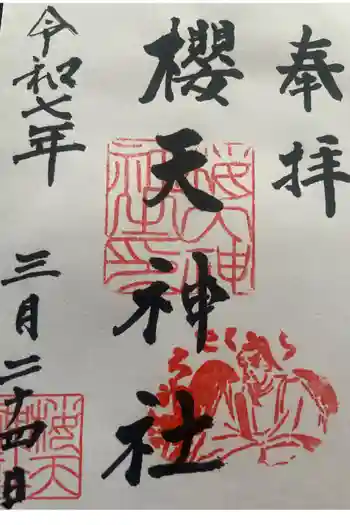 奉拝
櫻天神社
令和七年
三月二十四日
さくら